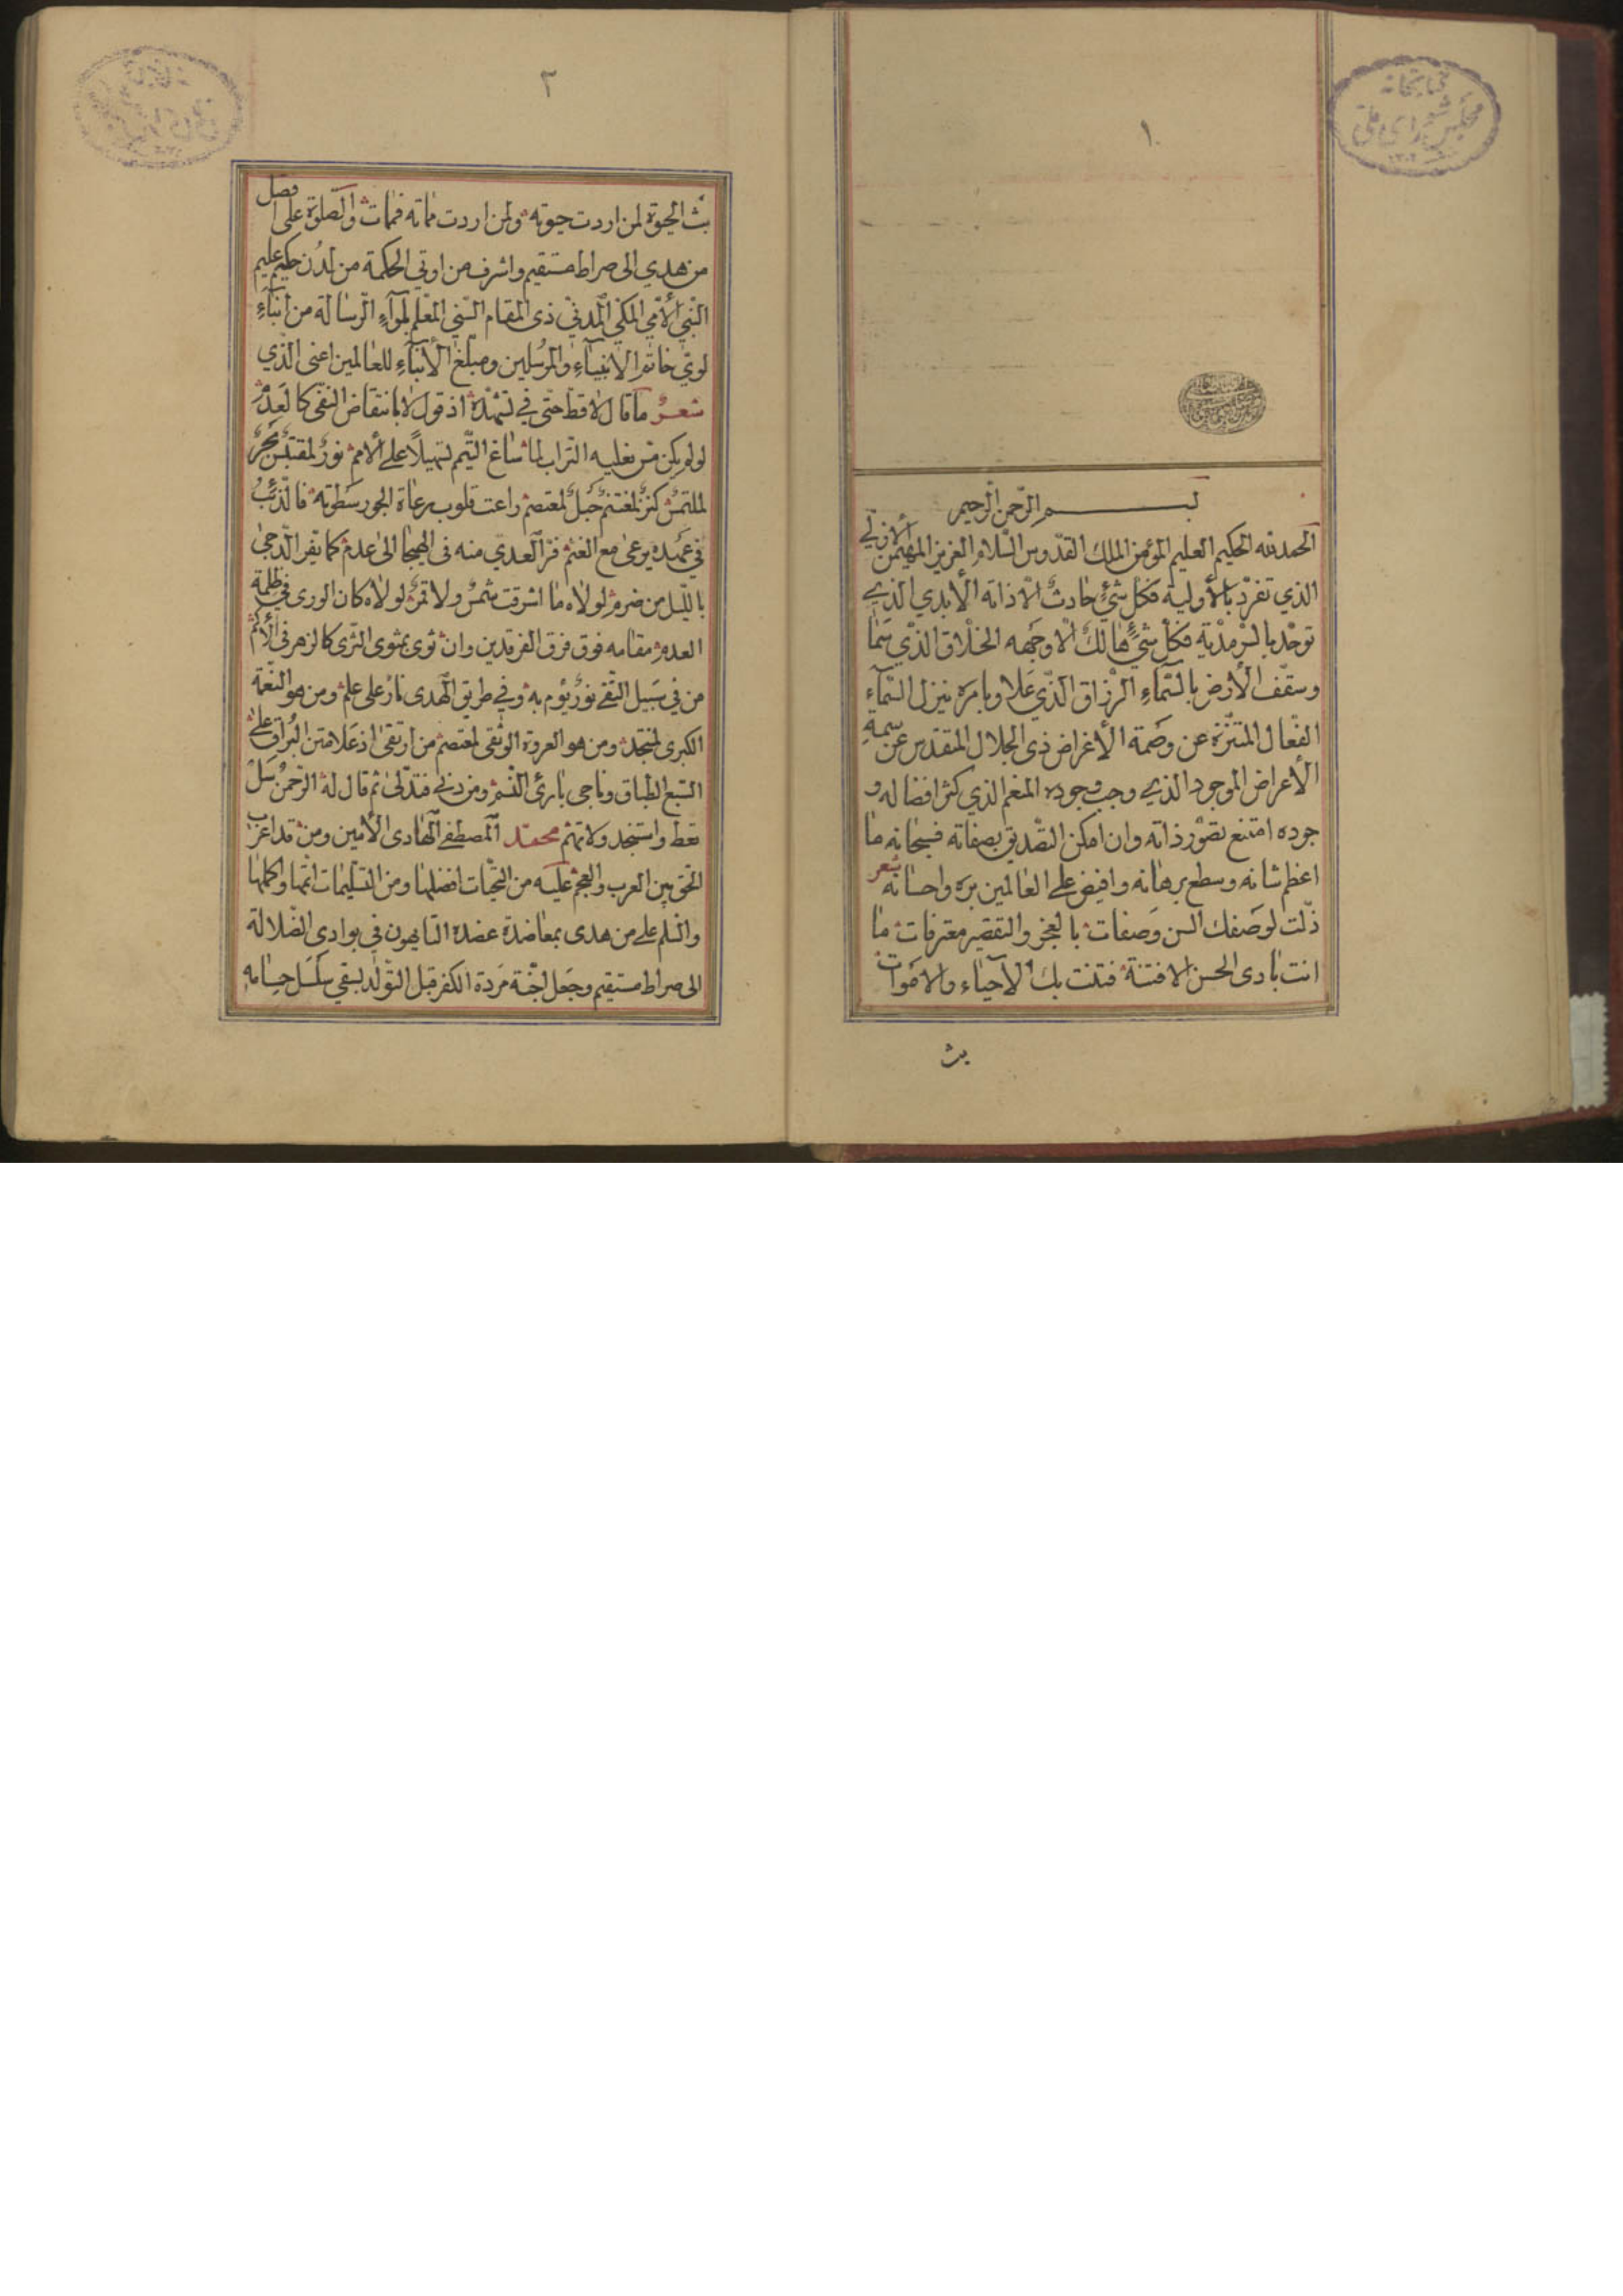 ١
كتابخانه
مجلس شورای ملی
١٣٠٢
بســـــم الرّحمن الرّحيم
الحمد لله الحكيم العليم المؤمن الملك القدّوس السّلام العزيز المهيمن الأزلي
الذي تفرّد بالأولية فكل شيٍ حادث الّا ذاته الأبدي الذي
توحّد بالسّرمدّية فكل شيٍ هالك الّا وجهه الخلّاق الذّي سمّا
وسقّف الأرض بالسّمآءِ الرّزاق الّذي علا وبامره ينزل السّمآء
الفعّال المتنزّه عن وصمة الأغراض ذي الجلال المقدّس عن سمة
الأعراض الموجود الذي وجب وجوده المنعم الذي كثر افضاله و
جوده امتنع تصوّر ذاته وان امكن التصديق بصفاته فسبحانه ما
اعظم شانه وسطع برهانه وافيض على العالمين بره واحسانه شعر
ذلّت لوصفك السن وصفات بالعجز والتقصير معترفات ما
انت بادى الحسن الا فتنة فتنت بك الأحياء والاموات
بث
٢
بث الحيوة لمن اردت حيوته ولمن اردت مماته فمات والصّلوة على افضل
من هدي الى صراط مستقيم واشرف من اوتي الحكمة من لدن حكيم عليم
النّبي الأمّي المكّي المدنيّ ذى المقام السّني المعلّم لموآءِ الرّسالة من ابنآءِ
لويّ خاتم الانبيآءِ والمرسلين ومبلّغ الأنبآءِ للعالمين اعنى الّذي
شعر ما قال لا قط حتّى في تشهّده اذ قول لا بانتقاض النفى كالعدم
لو لم يكن مسّ نعليه التراب لما ساغ التّيمم تسهيلًا على الأمم نور لمقتبس بحر
لملتمس كنز لمغتنم حبل لمعتصم راعت قلوب رعاة الجور سطوته فالذّئب
في عهده يرعى مع الغنم فرّ العدي منه فى الهيجا الى عدم كما تفر الدّجى
باللّيل من ضرم لولاه ما اشرقت شمس ولا قمر لولاه كان الورى في ظلمة
العدم مقامه فوق فرق الفرقدين وان ثوى بمثوى الثّرى كالزهر فى الأكم
من في سبيل التّقى نور يؤم به وفي طريق الهدى نار على علم ومن هو النّعمة
الكبرى لمنتجد ومن هو العروة الوثقى لمعتصم من ارتقى اذ علا متن البراق على
السّبع الطّباق وناجى بارئ النّسم ومن دنى فتدلّى ثم قال له الرّحمن سل
تعط واستنجد ولا تهم محمّد المصطفى الهادى الأمين ومن قد اعرب
الحق بين العرب والعجم عليه من التحيّات افضلها ومن التسليمات اتمّها واكملها
والسّلم على من هدى بمعاضدة عضده التايهون في بوادى الضّلالة
الى صراط مستقيم وجعل لجنّة مردة الكفر قبل التّولد بسقي سلسل حسامه